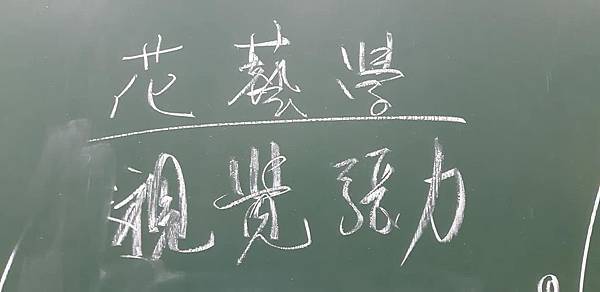 花藝學
視覺張力